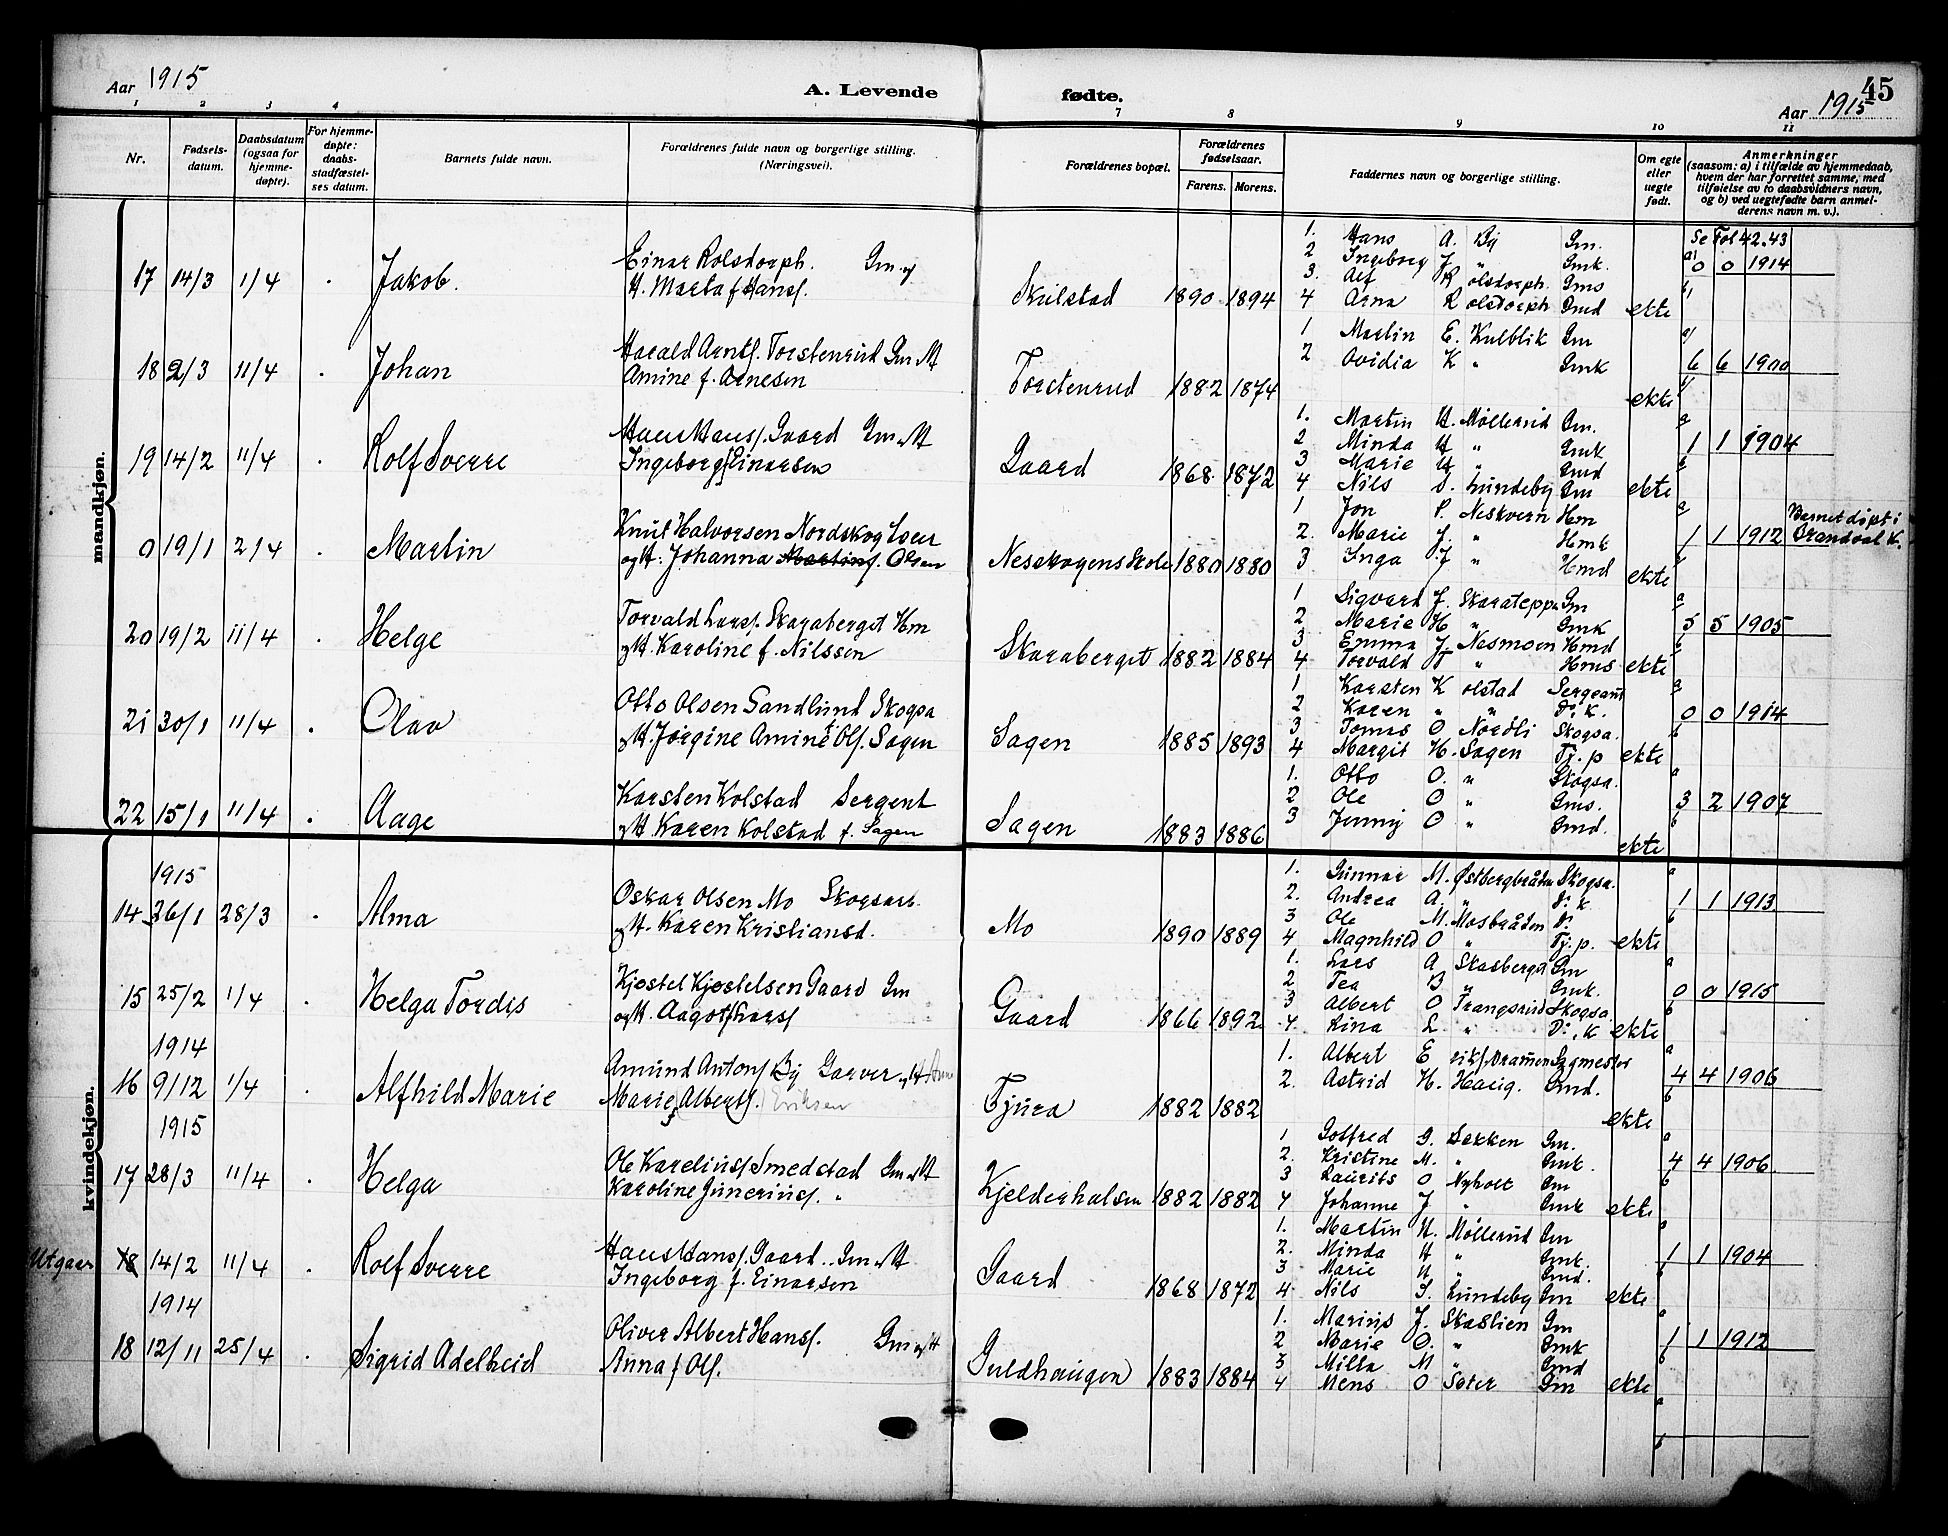 Aar 1915
A. Levende fødte.
45
Aar 1915
1 2 3 4 7 8 9 10 11
Nr.
Fødsels-datum.
Daabsdatum (ogsaa for hjemme-døpte).
For hjemme-døpte: daabs-stadfæstel-ses datum.
Barnets fulde navn.
Forældrenes fulde navn og borgerlige stilling. (Næringsvei).
Forældrenes bopæl.
Forældrenes fødselsaar.
Farens. Morens.
Faddernes navn og borgerlige stilling.
Om egte eller uegte født.
Anmerkninger
(saasom: a) i tilfælde av hjemmedaab, hvem der har forrettet samme, med tilføielse av to daabsvidners navn, og b) ved uegtefødte barn anmel-derens navn m. v.).
mandkjøn.
Se Fol 42.43
17 14/3 1/4 Jakob. Einar Rolsdorph. Gm og
H. Marta f Hans. Skulstad 1890 1894 ekte
1. Hans A. By Gm.
2 Ingeborg J. " Gmk.
3. Alf Rolsdorph. Gms
4 Arna Rolsdorph Gmd
a) 0 0 1914
18 2/3 11/4 Johan Harald Arnts. Torstenrud Gm H
Amine f. Arnesen Torstenrud 1882 1874 ekte
1 Martin E. Kulblik Gm
2 Ovidia K " Gmk
6 6 1900
19 14/2 11/4 Rolf Sverre Hans Hans. Gaard Gm H
Ingeborg f Einarsen Gaard 1868 1872 ekte
1. Martin H. Møllerud Gm.
2. Minda H " Gmk
3 Marie H " Gmd
4 Nils S. Lundeby Gm
1 1 1904
0 19/1 2/4 Martin Knut Halvorsen Nordskog
og H. Johanna Martins. Olsen Nesskogens Skole 1880 1880 ekte
1 Jon P. Neskvern Hm
2. Marie J. " Hmk
3 Inga J " Hmd
1 1 1912 Barnet døpt i Brandval K.
20 19/2 11/4 Helge Torvald Lars. Skaraberget Hm
og H. Karoline f. Nilssen Skaraberget 1882 1884 ekte
1 Sigvard J. Skarateppn Gm
2 Marie H " Gmk
3 Emma J. Nesmoen Hmd
4 Torvald T " Hms
5 5 1905
21 30/1 11/4 Olav Otto Olsen Sandlund Skogsa
og H. Jørgine Amine f. Ols. Sagen Sagen 1885 1893 ekte
1 Karsten Kolstad Sergeant
2 Karen " " D. K.
3 Tomas O Nordli Skogsa.
4 Margit H. Sagen Tj. p
0 0 1914
22 15/1 11/4 Aage Karsten Kolstad Sergent
og H Karen Kolstad f. Sagen Sagen 1883 1886 ekte
1. Otto O. " Skogsa.
2 Ole O " Gms.
3 Jenny O " Gmd.
3 2 1907
kvindekjøn.
1915
14 26/1 28/3 Alma Oskar Olsen Mo Skogsarb.
og H. Karen Kristiansd. Mo 1890 1889 ekte
1. Gunnar M. Østbergbråden Skogsa.
2. Andrea A. " D. K
3 Ole M. Mosbråden D.
4 Magnhild O " Tj. p.
1 1 1913
15 25/2 1/4 Helga Tordis Kjøstel Kjøstelsen Gaard Gm
og H. Aagot f Lars Gaard 1866 1892 ekte
1. Lars A Skasberget Gm
2 Tea B " Gmk.
3 Albert O Trangsrud Skogsa
4. Rina L. " D. K
0 0 1915
1914
16 9/12 1/4 Alfhild Marie Amund Antons By Garver og H
Marie f Alberts. Eriksen Tjura 1882 1882 ekte
1. Albert Eriks. Dramen Sagmester
2. Astrid H. Haug. Gmd.
4 4 1906
1915
17 28/3 11/4 Helga Ole Karelius Smedstad Gm og H
Karoline Junerius. " Kjelderhalsen 1882 1882 ekte
1 Gotfred G. Løkken Gm.
2. Kristine M. " Gmk.
3 Laurits O Nyholt Gm
4 Johanne J " Gmk
4 4 1906
Utgaar 18 14/2 11/4 Rolf Sverre Hans Hans. Gaard. Gm H
Ingeborg f. Einarsen Gaard 1868 1872 ekte
1. Martin H. Møllerud Gm
2. Minda H " Gmk.
3 Marie H " Gmd.
4. Nils S. Lundeby Gm
1 1 1904
1914
18 12/11 25/4 Sigrid Adelheid Oliver Albert Hans. Gm og H
Anna f Ols. Guldhaugen 1883 1884 ekte
1. Marius J. Skaslien Gm
2 Marie O. " Gmk
3 Milla M " Gmd
4 Mens O Sæter Gm
1 1 1912